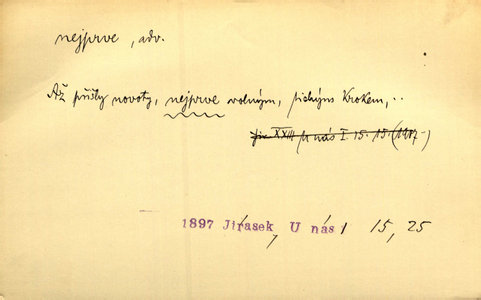 nejprve, adv.
Až přišly novoty, nejprve volným, tichým krokem, ..
Jir. XXIII U nás I. 15. 15. (1917-)
1897 Jirásek, U nás 1 15, 25